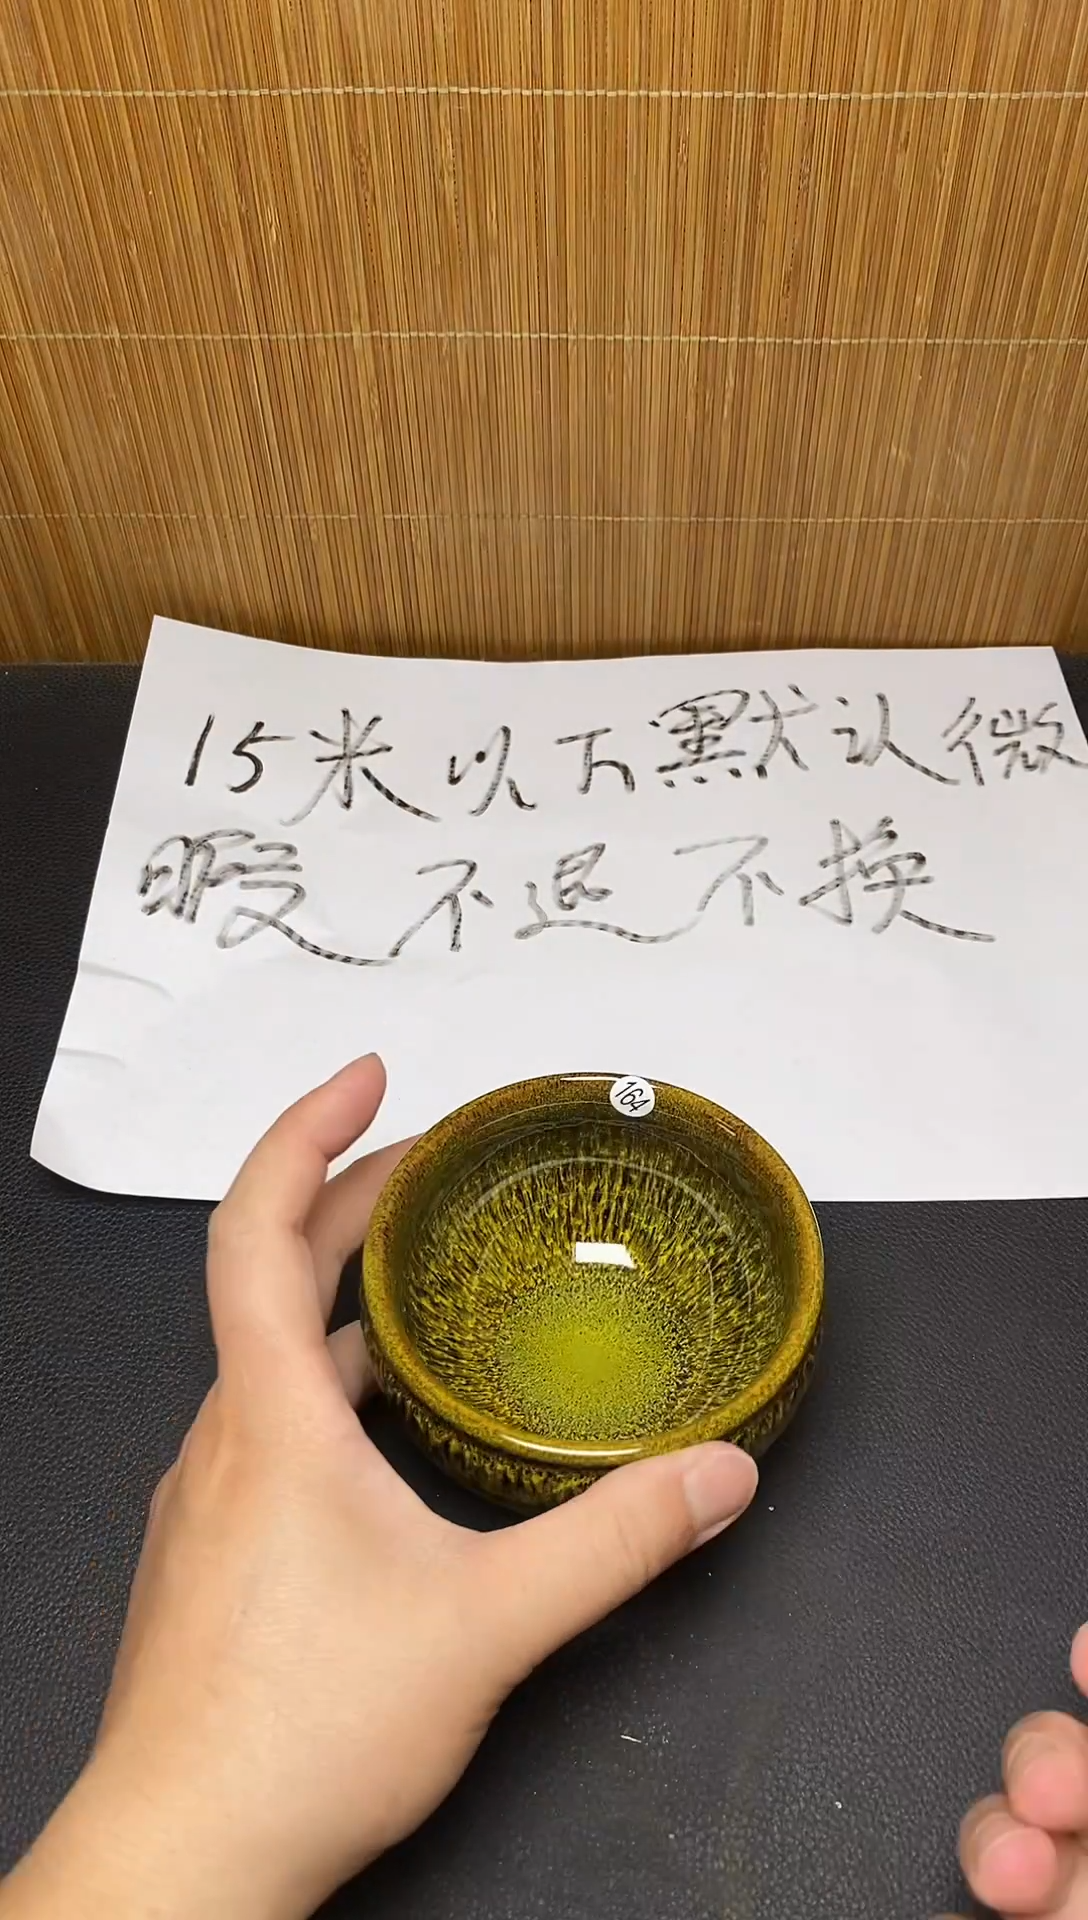 15米以下默认微
暇不退不换
164